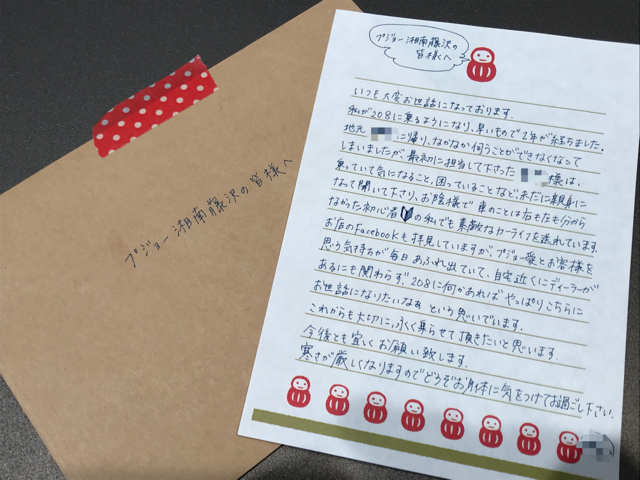 プジョー湘南藤沢の皆様へ
プジョー湘南藤沢の
皆様へ
いつも大変お世話になっております。
私が208に乗るようになり、早いもので2年が経ちました。
地元に帰り、なかなか伺うことができなくなって
しまいましたが、最初に担当して下さった様は、
乗っていて気になること、困っていることなど、未だに親身に
なって聞いて下さり、お陰様で車のことは右も左も分から
なかった初心者の私でも素敵なカーライフを送れています。
お店のFacebookも拝見していますが、プジョー愛とお客様を
思う気持ちが毎日あふれ出ていて、自宅近くにディーラーが
あるにも関わらず、208に何かあればやっぱりこちらに
お世話になりたいなぁという思いでいます。
これからも大切に、永く乗らせて頂きたいと思います。
今後とも宜しくお願い致します。
寒さが厳しくなりますのでどうぞお身体に気をつけてお過ごし下さい。